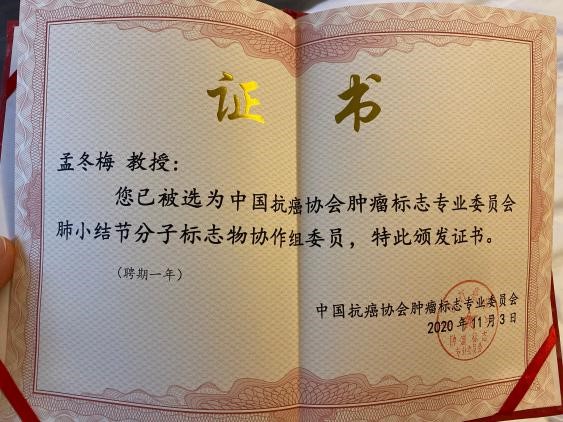 证 书
孟冬梅 教授：
您已被选为中国抗癌协会肿瘤标志专业委员会
肺小结节分子标志物协作组委员，特此颁发证书。
（聘期一年）
中国抗癌协会肿瘤标志专业委员会
2020 年 11 月 3 日
肿瘤标志
专业委员会